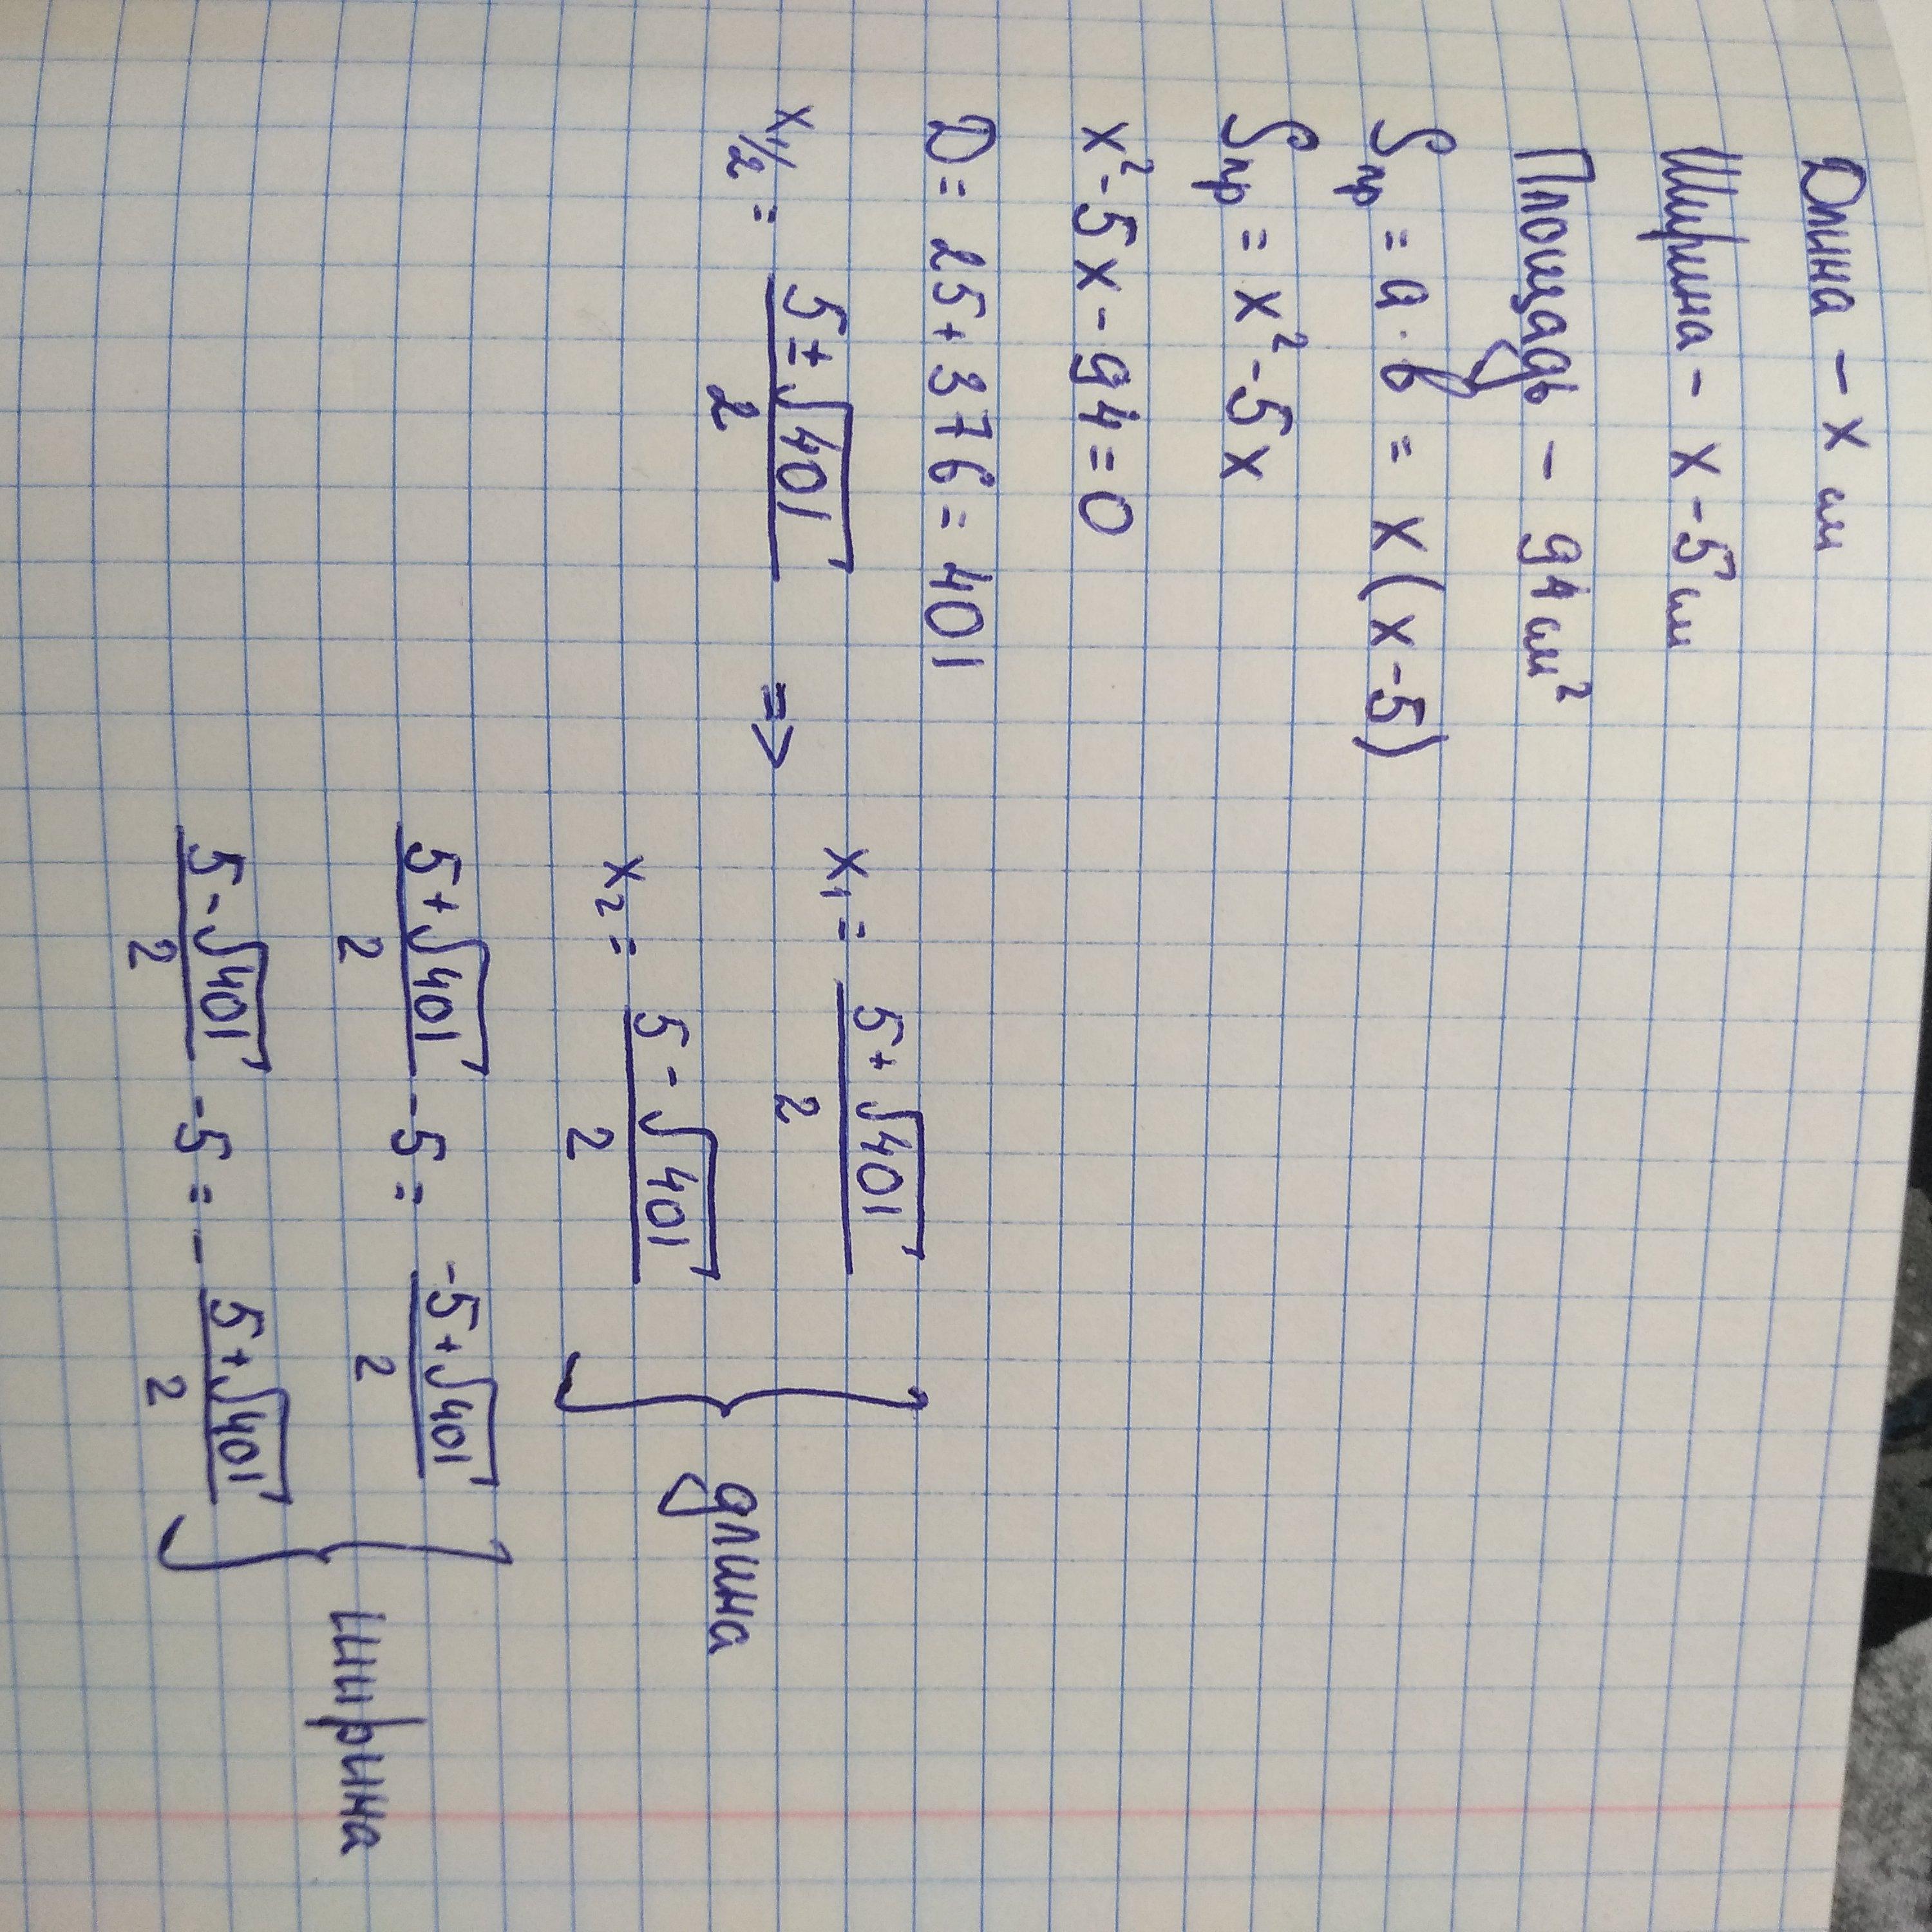 Длина - x см
Ширина - x - 5 см
Площадь - 94 см²
Sпр = a · b = x (x - 5)
Sпр = x² - 5x
x² - 5x - 94 = 0
D = 25 + 376 = 401
x1/2 = (5 ± √401)/2 => x₁ = (5 + √401)/2
x₂ = (5 - √401)/2
} длина
(5 + √401)/2 - 5 = (-5 + √401)/2
(5 - √401)/2 - 5 = - (5 + √401)/2
} Ширина